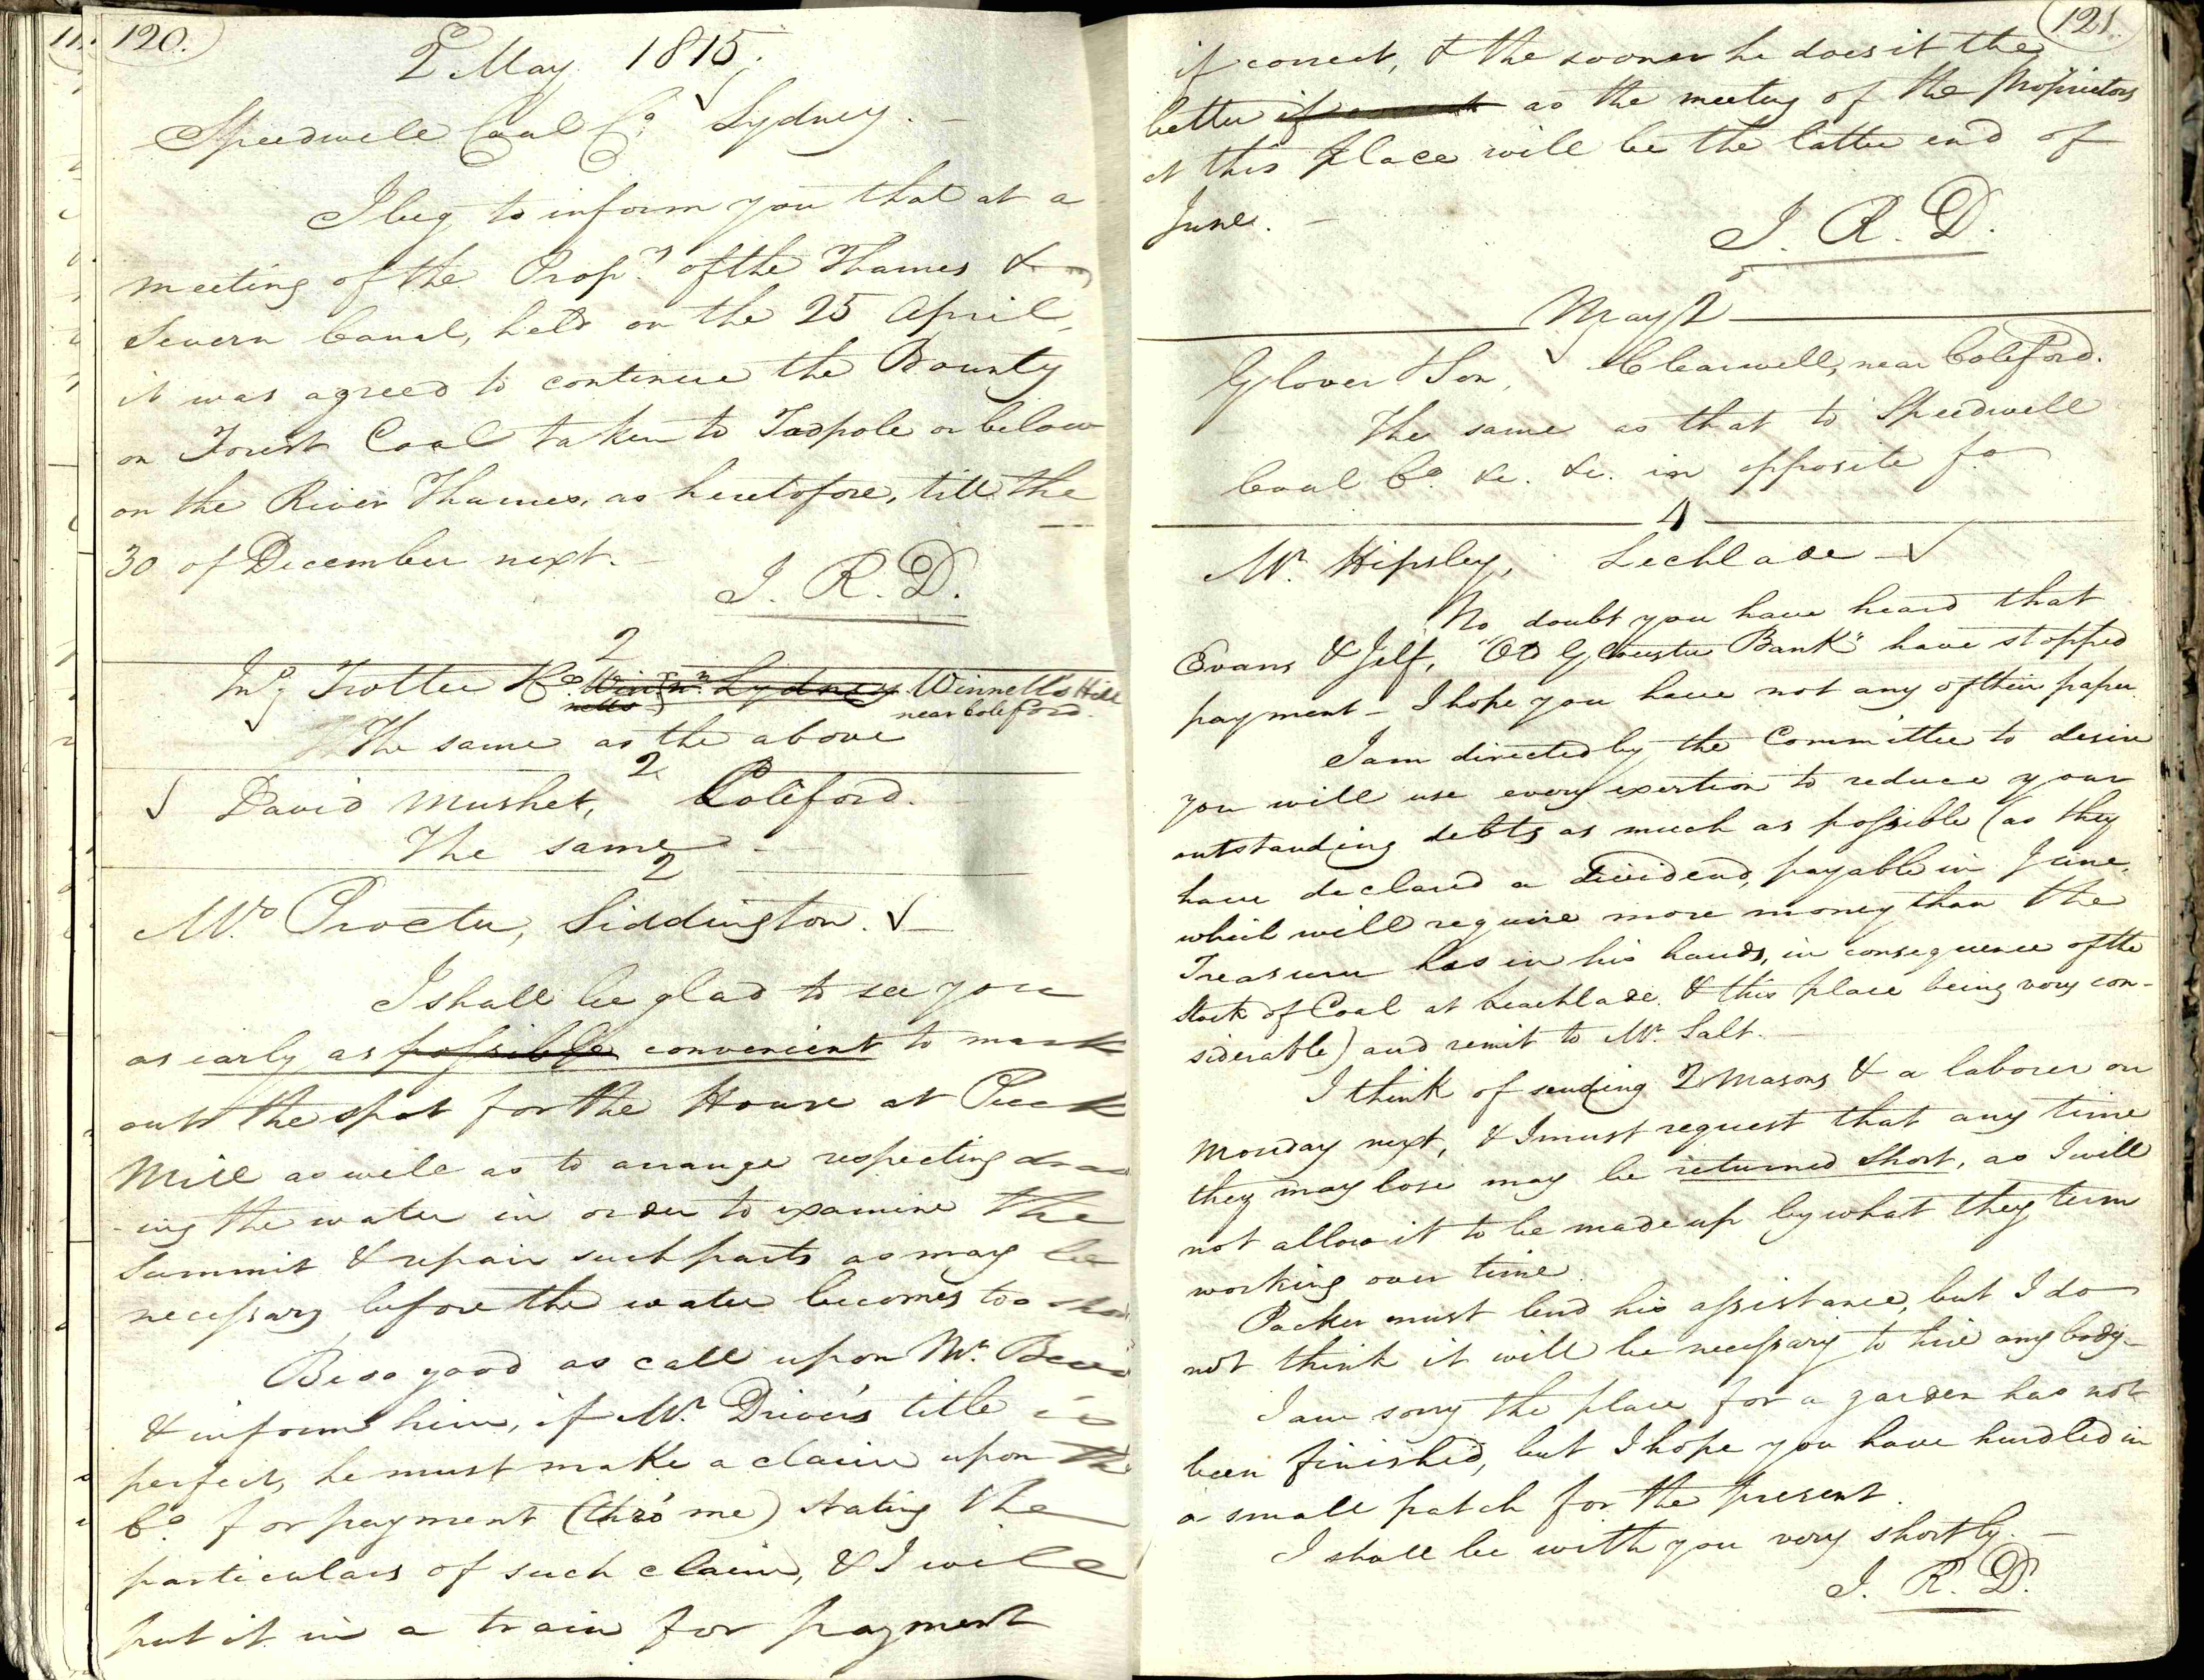 120.
2 May 1815.
Speedwell Coal Co. Lydney.
I beg to inform you that at a
meeting of the Proprs. of the Thames &
Severn Canal, held on the 25 April,
it was agreed to continue the Bounty
on Forest Coal taken to Tadpole or below
on the River Thames, as heretofore, till the
30 of December next.
J. R. D.
2
Jno. Trotter & Co. Winnells Hill
near Coleford.
The same as the above
2
David Mushet, Coleford.
The same
2
Mr. Procter, Siddington.
I shall be glad to see you
as early as possible convenient to mark
out the spot for the House at Puck
Mill as well as to arrange respecting
-ing the water in order to examine the
Summit & repair such parts as may be
necessary before the water becomes too
Be so good as call upon Mr.
& inform him, if Mr. Driver's title is
perfect, he must make a claim upon the
Co. for payment (thro' me) stating the
particulars of such claim, & I will
put it in a train for payment
121.
if correct, & the sooner he does it the
better if as the meeting of the Proprietors
at this place will be the latter end of
June.
J. R. D.
May 2
Glover & Son, Clearwell, near Coleford.
The same as that to Speedwell
Coal Co. &c. &c. in opposite fo.
4
Mr. Hipsley, Lechlade
No doubt you have heard that
Evans & Jelf, "Old Gloucester Bank" have stopped
payment - I hope you have not any of their paper.
I am directed by the Committee to desire
you will use every exertion to reduce your
outstanding debts as much as possible (as they
have declared a dividend, payable in June,
which will require more money than the
Treasurer has in his hands, in consequence of the
Stock of Coal at Leachlade & this place being very con-
siderable) and remit to Mr. Salt.
I think of sending 2 Masons & a laborer on
Monday next, & I must request that any time
they may lose may be returned short, as I will
not allow it to be made up by what they term
working over time.
Packer must lend his assistance, but I do
not think it will be necessary to hire any body.
I am sorry the place for a garden has not
been finished, but I hope you have hurdled in
a small patch for the present.
I shall be with you very shortly.
J. R. D.